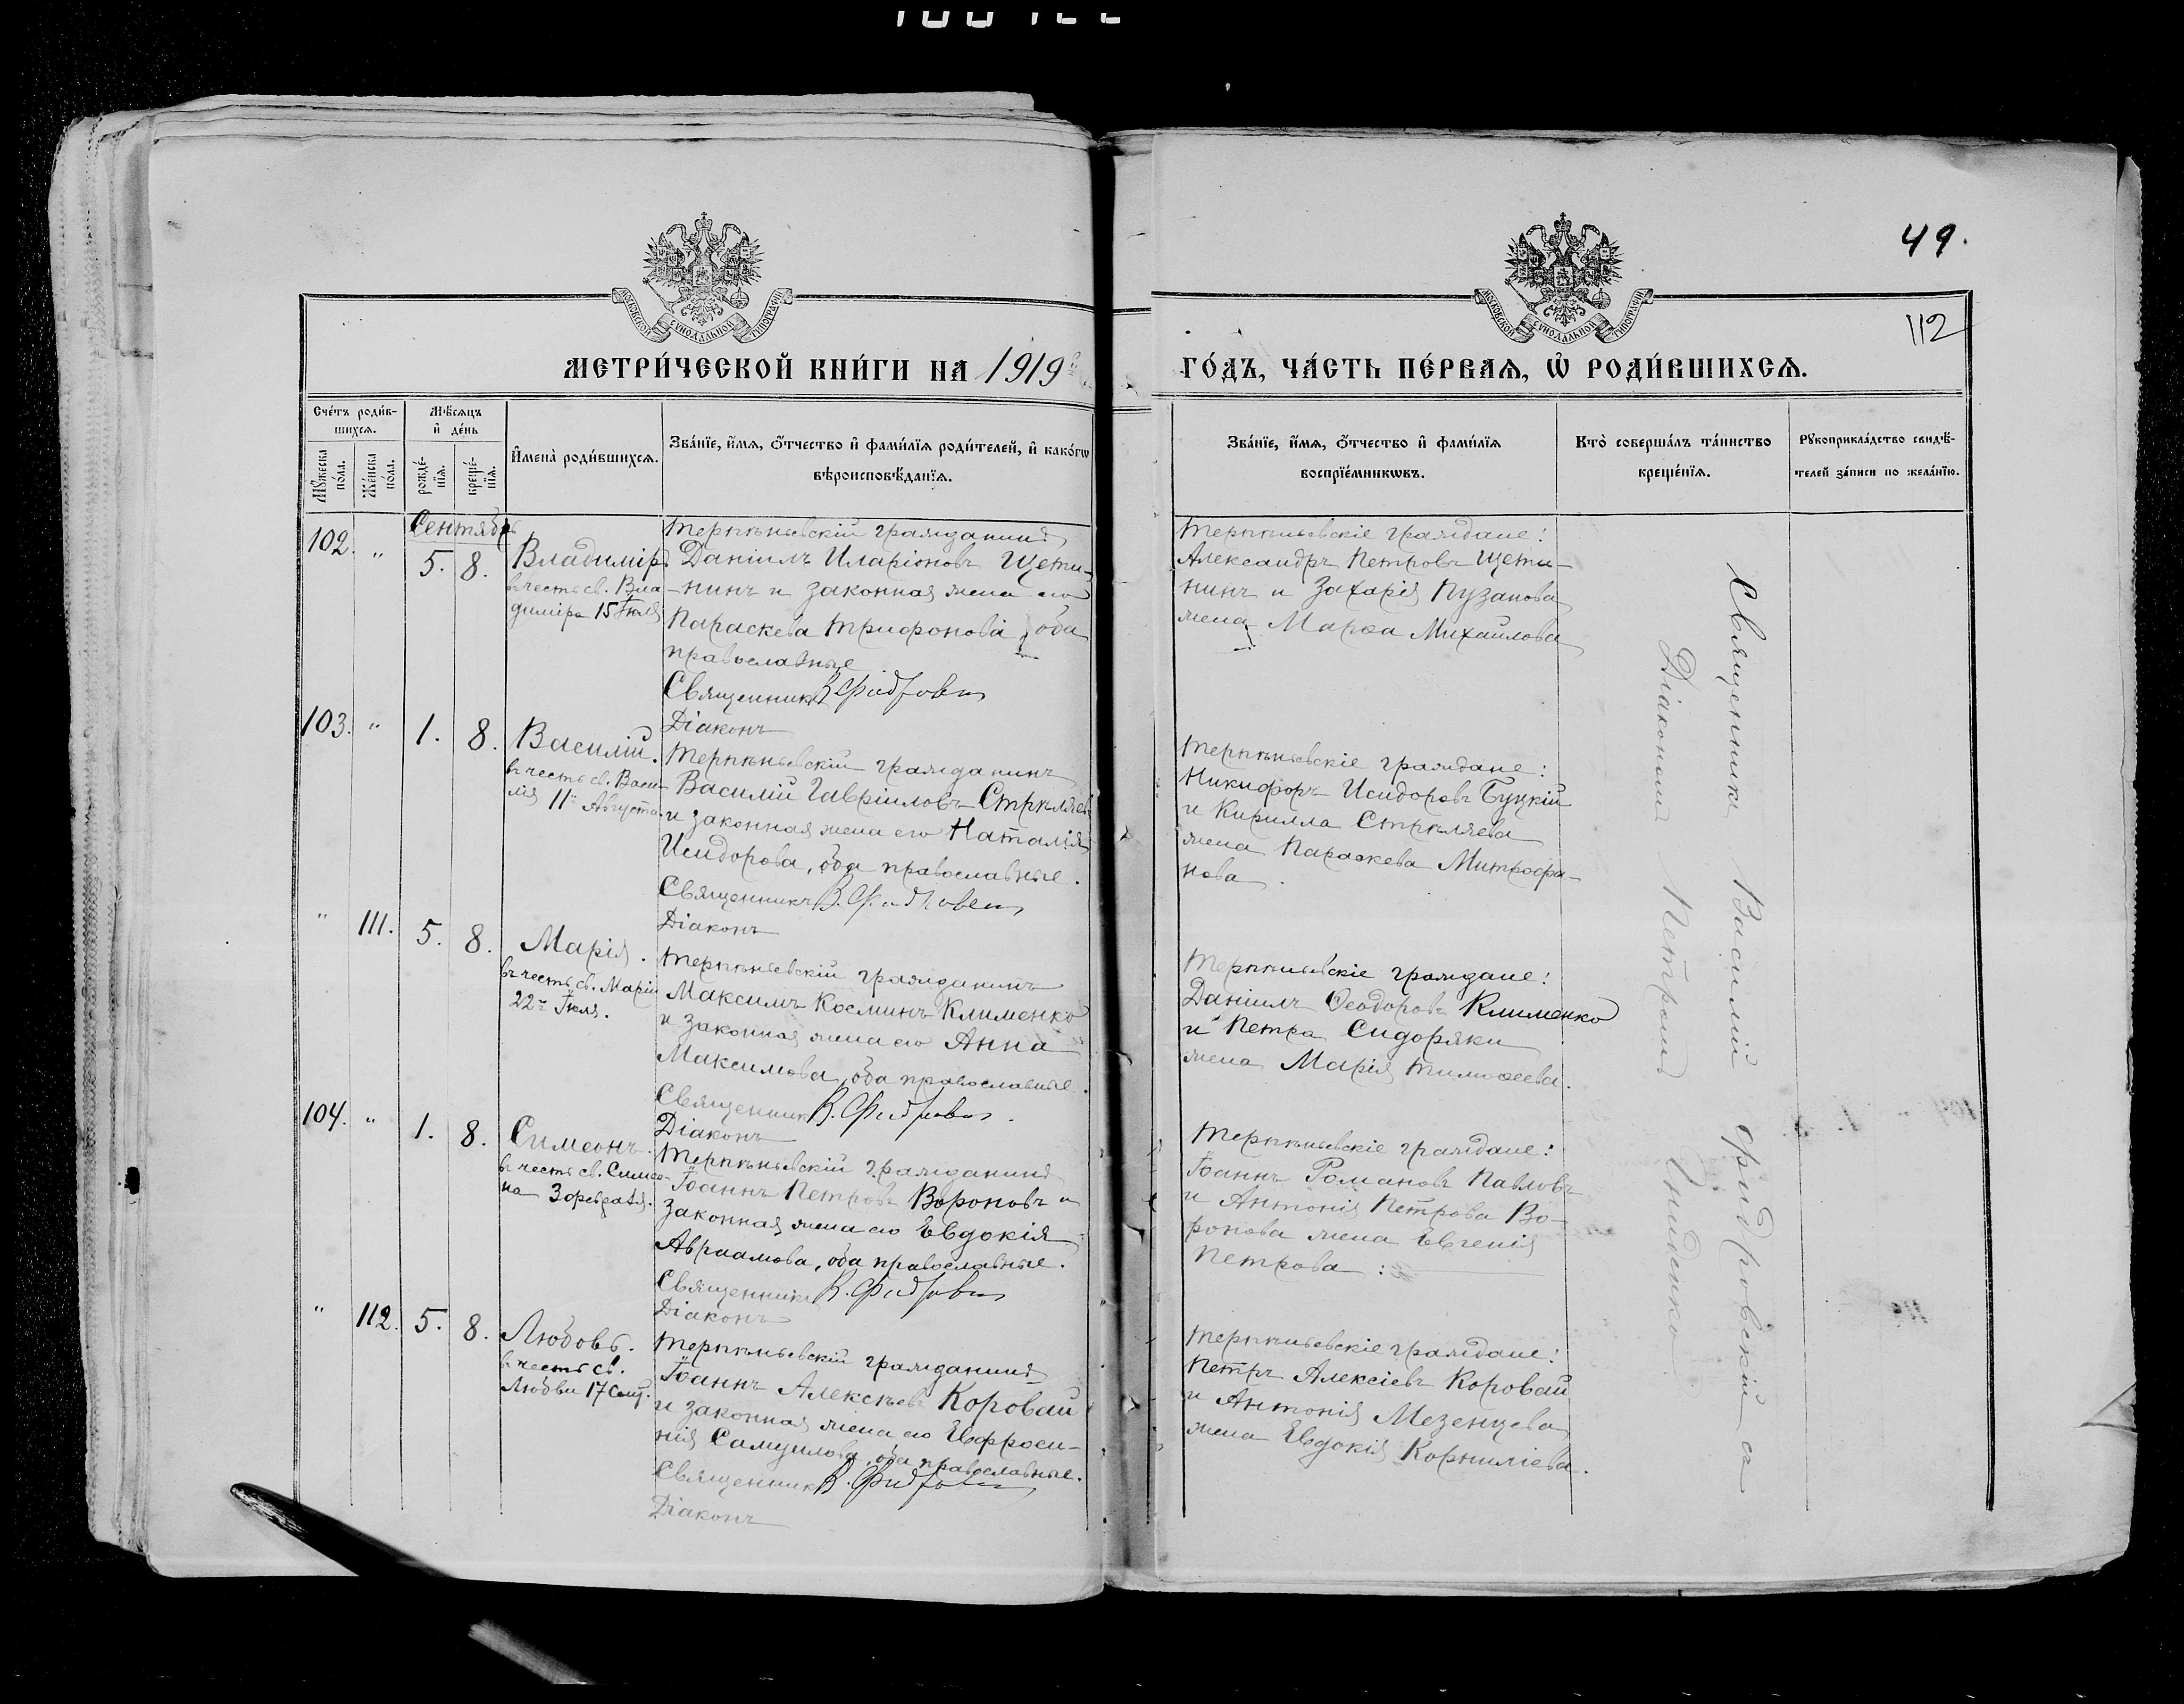 49.
112
МОСКОВСКОЙ СѴНОДАЛЬНОЙ ТИПОГРАФІИ
МОСКОВСКОЙ СѴНОДАЛЬНОЙ ТИПОГРАФІИ
МЕТРИ́ЧЕСКОЙ КНИ́ГИ НА 1919
ГО́ДЪ, ЧА́СТЬ ПЕ́РВАѦ, Ѡ РОДИ́ВШИХСѦ.
Сче́тъ роди́в-
шихсѧ.
Мꙋ́жеска по́ла.
Же́нска по́ла.
Мѣ́сѧцъ
и҆ де́нь
рожде́-
нїѧ.
креще́-
нїѧ.
И҆мена̀ роди́вшихсѧ.
Зва́нїе, и҆́мѧ, ѻ҆́тчество и҆ фами́лїѧ роди́телей, и҆ како́гѡ
вѣроисповѣ́данїѧ.
Зва́нїе, и҆́мѧ, ѻ҆́тчество и҆ фами́лїѧ
воспрїе́мникѡвъ.
Кто̀ соверша́лъ та́инство
креще́нїѧ.
Рꙋкоприкла́дство свидѣ́-
телей за́писи по жела́нїю.
Сентябрь
102. " 5. 8.
Владиміръ
въ честь св. Вла-
диміра 15 Іюля
Терпѣньевскій гражданинъ
Даніилъ Иларіоновъ Щети-
-нинъ и законная жена его
Параскева Трифонова, оба
православные
Священникъ В. Фидровскій
Діаконъ
Терпѣньевскіе граждане:
Александръ Петровъ Щети-
нинъ и Захарія Пузанова
жена Марѳа Михаилова
103. " 1. 8.
Василій.
въ честь св. Васи-
лія 11го Августа.
Терпѣньевскій гражданинъ
Василій Гавріиловъ Стрѣляевъ
и законная жена его Наталія
Исидорова, оба православные.
Священникъ В. Фидровскій
Діаконъ
Терпѣньевскіе граждане:
Никифоръ Исидоровъ Буцкій
и Кирилла Стрѣляева
жена Параскева Митрофа-
нова.
" 111. 5. 8.
Марія.
въ честь св. Маріи
22го Іюля.
Терпѣньевскій гражданинъ
Максимъ Косминъ Клименко
и законная жена его Анна
Максимова, оба православные.
Священникъ В. Фидровскій
Діаконъ
Терпѣньевскіе граждане:
Даніилъ Ѳеодоровъ Клименко
и Петра Сидоряки
жена Марія Тимоѳеева.
104. " 1. 8.
Симеонъ.
въ честь св. Симео-
на 3 февраля.
Терпѣньевскій гражданинъ
Іоаннъ Петровъ Вороновъ и
законная жена его Евдокія
Авраамова, оба православные.
Священникъ В. Фидровскій
Діаконъ
Терпѣньевскіе граждане:
Іоаннъ Романовъ Павловъ
и Антонія Петрова Во-
ронова жена Евгенія
Петрова:
" 112. 5. 8.
Любовь.
въ честь св.
Любви 17 Сент.
Терпѣньевскій гражданинъ
Іоаннъ Алексѣевъ Коровай
и законная жена его Евфроси-
нія Самуилова, оба православные.
Священникъ В. Фидровскій
Діаконъ
Терпѣньевскіе граждане:
Петръ Алексіевъ Коровай
и Антонія Мезенцева
жена Евдокія Корниліева.
Священникъ Василій Фидровскій съ
Діакономъ Петромъ